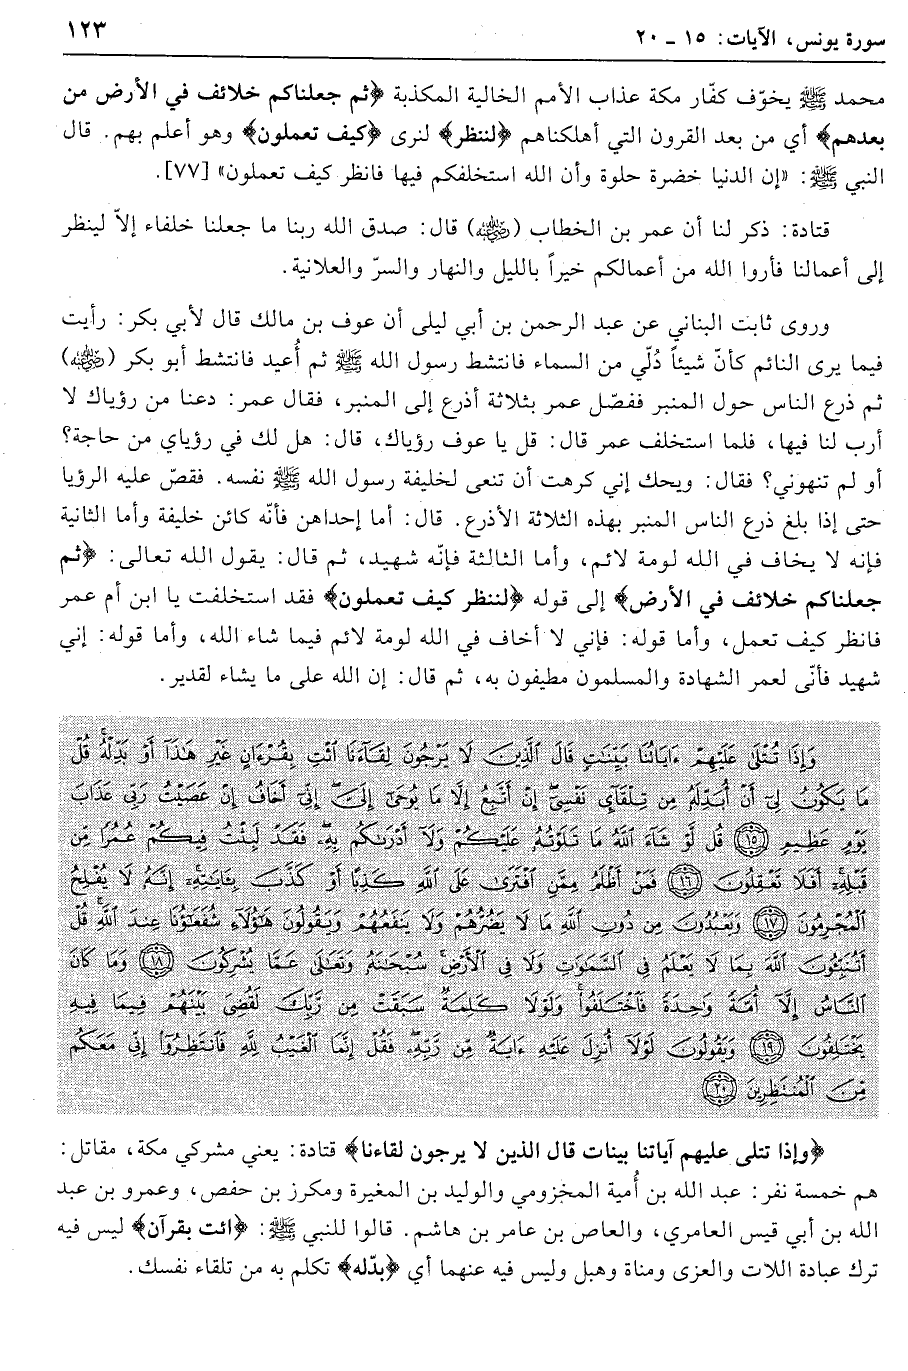 سورة يونس، الآيات: ١٥ ـ ٢٠ ١٢٣
محمد ﷺ يخوّف كفّار مكة عذاب الأمم الخالية المكذبة ﴿ثم جعلناكم خلائف في الأرض من
بعدهم﴾ أي من بعد القرون التي أهلكناهم ﴿لننظر﴾ لنرى ﴿كيف تعملون﴾ وهو أعلم بهم. قال
النبي ﷺ: «إن الدنيا خضرة حلوة وأن الله استخلفكم فيها فانظر كيف تعملون» [٧٧].
قتادة: ذكر لنا أن عمر بن الخطاب (رضي الله عنه) قال: صدق الله ربنا ما جعلنا خلفاء إلاّ لينظر
إلى أعمالنا فأروا الله من أعمالكم خيراً بالليل والنهار والسرّ والعلانية.
وروى ثابت البناني عن عبد الرحمن بن أبي ليلى أن عوف بن مالك قال لأبي بكر: رأيت
فيما يرى النائم كأنّ شيئاً دُلّي من السماء فانتشط رسول الله ﷺ ثم أُعيد فانتشط أبو بكر (رضي الله عنه)
ثم ذرع الناس حول المنبر ففضّل عمر بثلاثة أذرع إلى المنبر، فقال عمر: دعنا من رؤياك لا
أرب لنا فيها، فلما استخلف عمر قال: قل يا عوف رؤياك، قال: هل لك في رؤياي من حاجة؟
أو لم تنهوني؟ فقال: ويحك إني كرهت أن تنعى لخليفة رسول الله ﷺ نفسه. فقصّ عليه الرؤيا
حتى إذا بلغ ذرع الناس المنبر بهذه الثلاثة الأذرع. قال: أما إحداهن فأنّه كائن خليفة وأما الثانية
فإنه لا يخاف في الله لومة لائم، وأما الثالثة فإنّه شهيد، ثم قال: يقول الله تعالى: ﴿ثم
جعلناكم خلائف في الأرض﴾ إلى قوله ﴿لننظر كيف تعملون﴾ فقد استخلفت يا ابن أم عمر
فانظر كيف تعمل، وأما قوله: فإني لا أخاف في الله لومة لائم فيما شاء الله، وأما قوله: إني
شهيد فأنّى لعمر الشهادة والمسلمون مطيفون به، ثم قال: إن الله على ما يشاء لقدير.
وَإِذَا تُتْلَىٰ عَلَيْهِمْ ءَايَاتُنَا بَيِّنَٰتٍ قَالَ ٱلَّذِينَ لَا يَرْجُونَ لِقَآءَنَا ٱئْتِ بِقُرْءَانٍ غَيْرِ هَٰذَآ أَوْ بَدِّلْهُ قُلْ
مَا يَكُونُ لِىٓ أَنْ أُبَدِّلَهُۥ مِن تِلْقَآئِ نَفْسِىٓ إِنْ أَتَّبِعُ إِلَّا مَا يُوحَىٰٓ إِلَىَّ إِنِّىٓ أَخَافُ إِنْ عَصَيْتُ رَبِّى عَذَابَ
يَوْمٍ عَظِيمٍ ﴿١٥﴾ قُل لَّوْ شَآءَ ٱللَّهُ مَا تَلَوْتُهُۥ عَلَيْكُمْ وَلَآ أَدْرَىٰكُم بِهِۦ فَقَدْ لَبِثْتُ فِيكُمْ عُمُرًا مِّن
قَبْلِهِۦٓ أَفَلَا تَعْقِلُونَ ﴿١٦﴾ فَمَنْ أَظْلَمُ مِمَّنِ ٱفْتَرَىٰ عَلَى ٱللَّهِ كَذِبًا أَوْ كَذَّبَ بِـَٔايَٰتِهِۦٓ إِنَّهُۥ لَا يُفْلِحُ
ٱلْمُجْرِمُونَ ﴿١٧﴾ وَيَعْبُدُونَ مِن دُونِ ٱللَّهِ مَا لَا يَضُرُّهُمْ وَلَا يَنفَعُهُمْ وَيَقُولُونَ هَٰٓؤُلَآءِ شُفَعَٰٓؤُنَا عِندَ ٱللَّهِ قُلْ
أَتُنَبِّـُٔونَ ٱللَّهَ بِمَا لَا يَعْلَمُ فِى ٱلسَّمَٰوَٰتِ وَلَا فِى ٱلْأَرْضِ سُبْحَٰنَهُۥ وَتَعَٰلَىٰ عَمَّا يُشْرِكُونَ ﴿١٨﴾ وَمَا كَانَ
ٱلنَّاسُ إِلَّآ أُمَّةً وَٰحِدَةً فَٱخْتَلَفُوا۟ وَلَوْلَا كَلِمَةٌ سَبَقَتْ مِن رَّبِّكَ لَقُضِىَ بَيْنَهُمْ فِيمَا فِيهِ
يَخْتَلِفُونَ ﴿١٩﴾ وَيَقُولُونَ لَوْلَآ أُنزِلَ عَلَيْهِ ءَايَةٌ مِّن رَّبِّهِۦ فَقُلْ إِنَّمَا ٱلْغَيْبُ لِلَّهِ فَٱنتَظِرُوٓا۟ إِنِّى مَعَكُم
مِّنَ ٱلْمُنتَظِرِينَ ﴿٢٠﴾
﴿وإذا تتلى عليهم آياتنا بينات قال الذين لا يرجون لقاءنا﴾ قتادة: يعني مشركي مكة، مقاتل:
هم خمسة نفر: عبد الله بن أُمية المخزومي والوليد بن المغيرة ومكرز بن حفص، وعمرو بن عبد
الله بن أبي قيس العامري، والعاص بن عامر بن هاشم. قالوا للنبي ﷺ: ﴿ائت بقرآن﴾ ليس فيه
ترك عبادة اللات والعزى ومناة وهبل وليس فيه عنهما أي ﴿بدّله﴾ تكلم به من تلقاء نفسك.